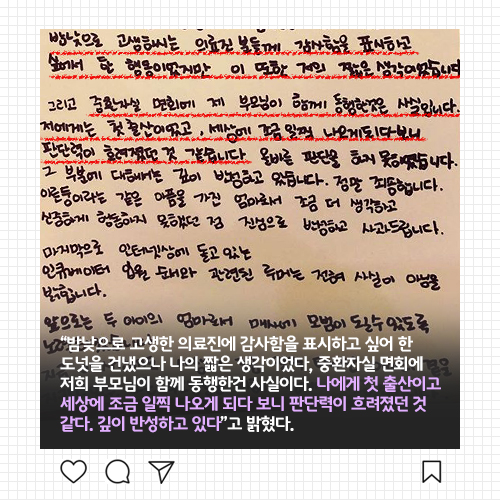 밤낮으로 고생하시는 의료진 분들께 감사함을 표시하고
싶어서 한 행동이었지만 이 또한 저의 짧은 생각이었습니다
그리고 중환자실 면회에 제 부모님이 함께 동행한것은 사실입니다.
저에게는 첫 출산이었고, 세상에 조금 일찍 나오게 되다보니
판단력이 흐려졌던 것 같습니다. 올바른 판단을 하지 못하였습니다.
그 부분에 대해서는 깊이 반성하고 있습니다. 정말 죄송합니다.
이른둥이라는 같은 아픔을 가진 엄마로서 조금 더 생각하고
신중하게 행동하지 못했던 점 진심으로 반성하고 사과드립니다.
마지막으로 인터넷상에 돌고 있는
인큐베이터 입원 순서와 관련된 루머는 전혀 사실이 아님을
밝힙니다.
앞으로는 두 아이의 엄마로서 매사에 모범이 될 수 있도록
“밤낮으로 고생한 의료진에 감사함을 표시하고 싶어 한
도넛을 건넸으나 나의 짧은 생각이었다, 중환자실 면회에
저희 부모님이 함께 동행한건 사실이다. 나에게 첫 출산이고
세상에 조금 일찍 나오게 되다 보니 판단력이 흐려졌던 것
같다. 깊이 반성하고 있다”고 밝혔다.